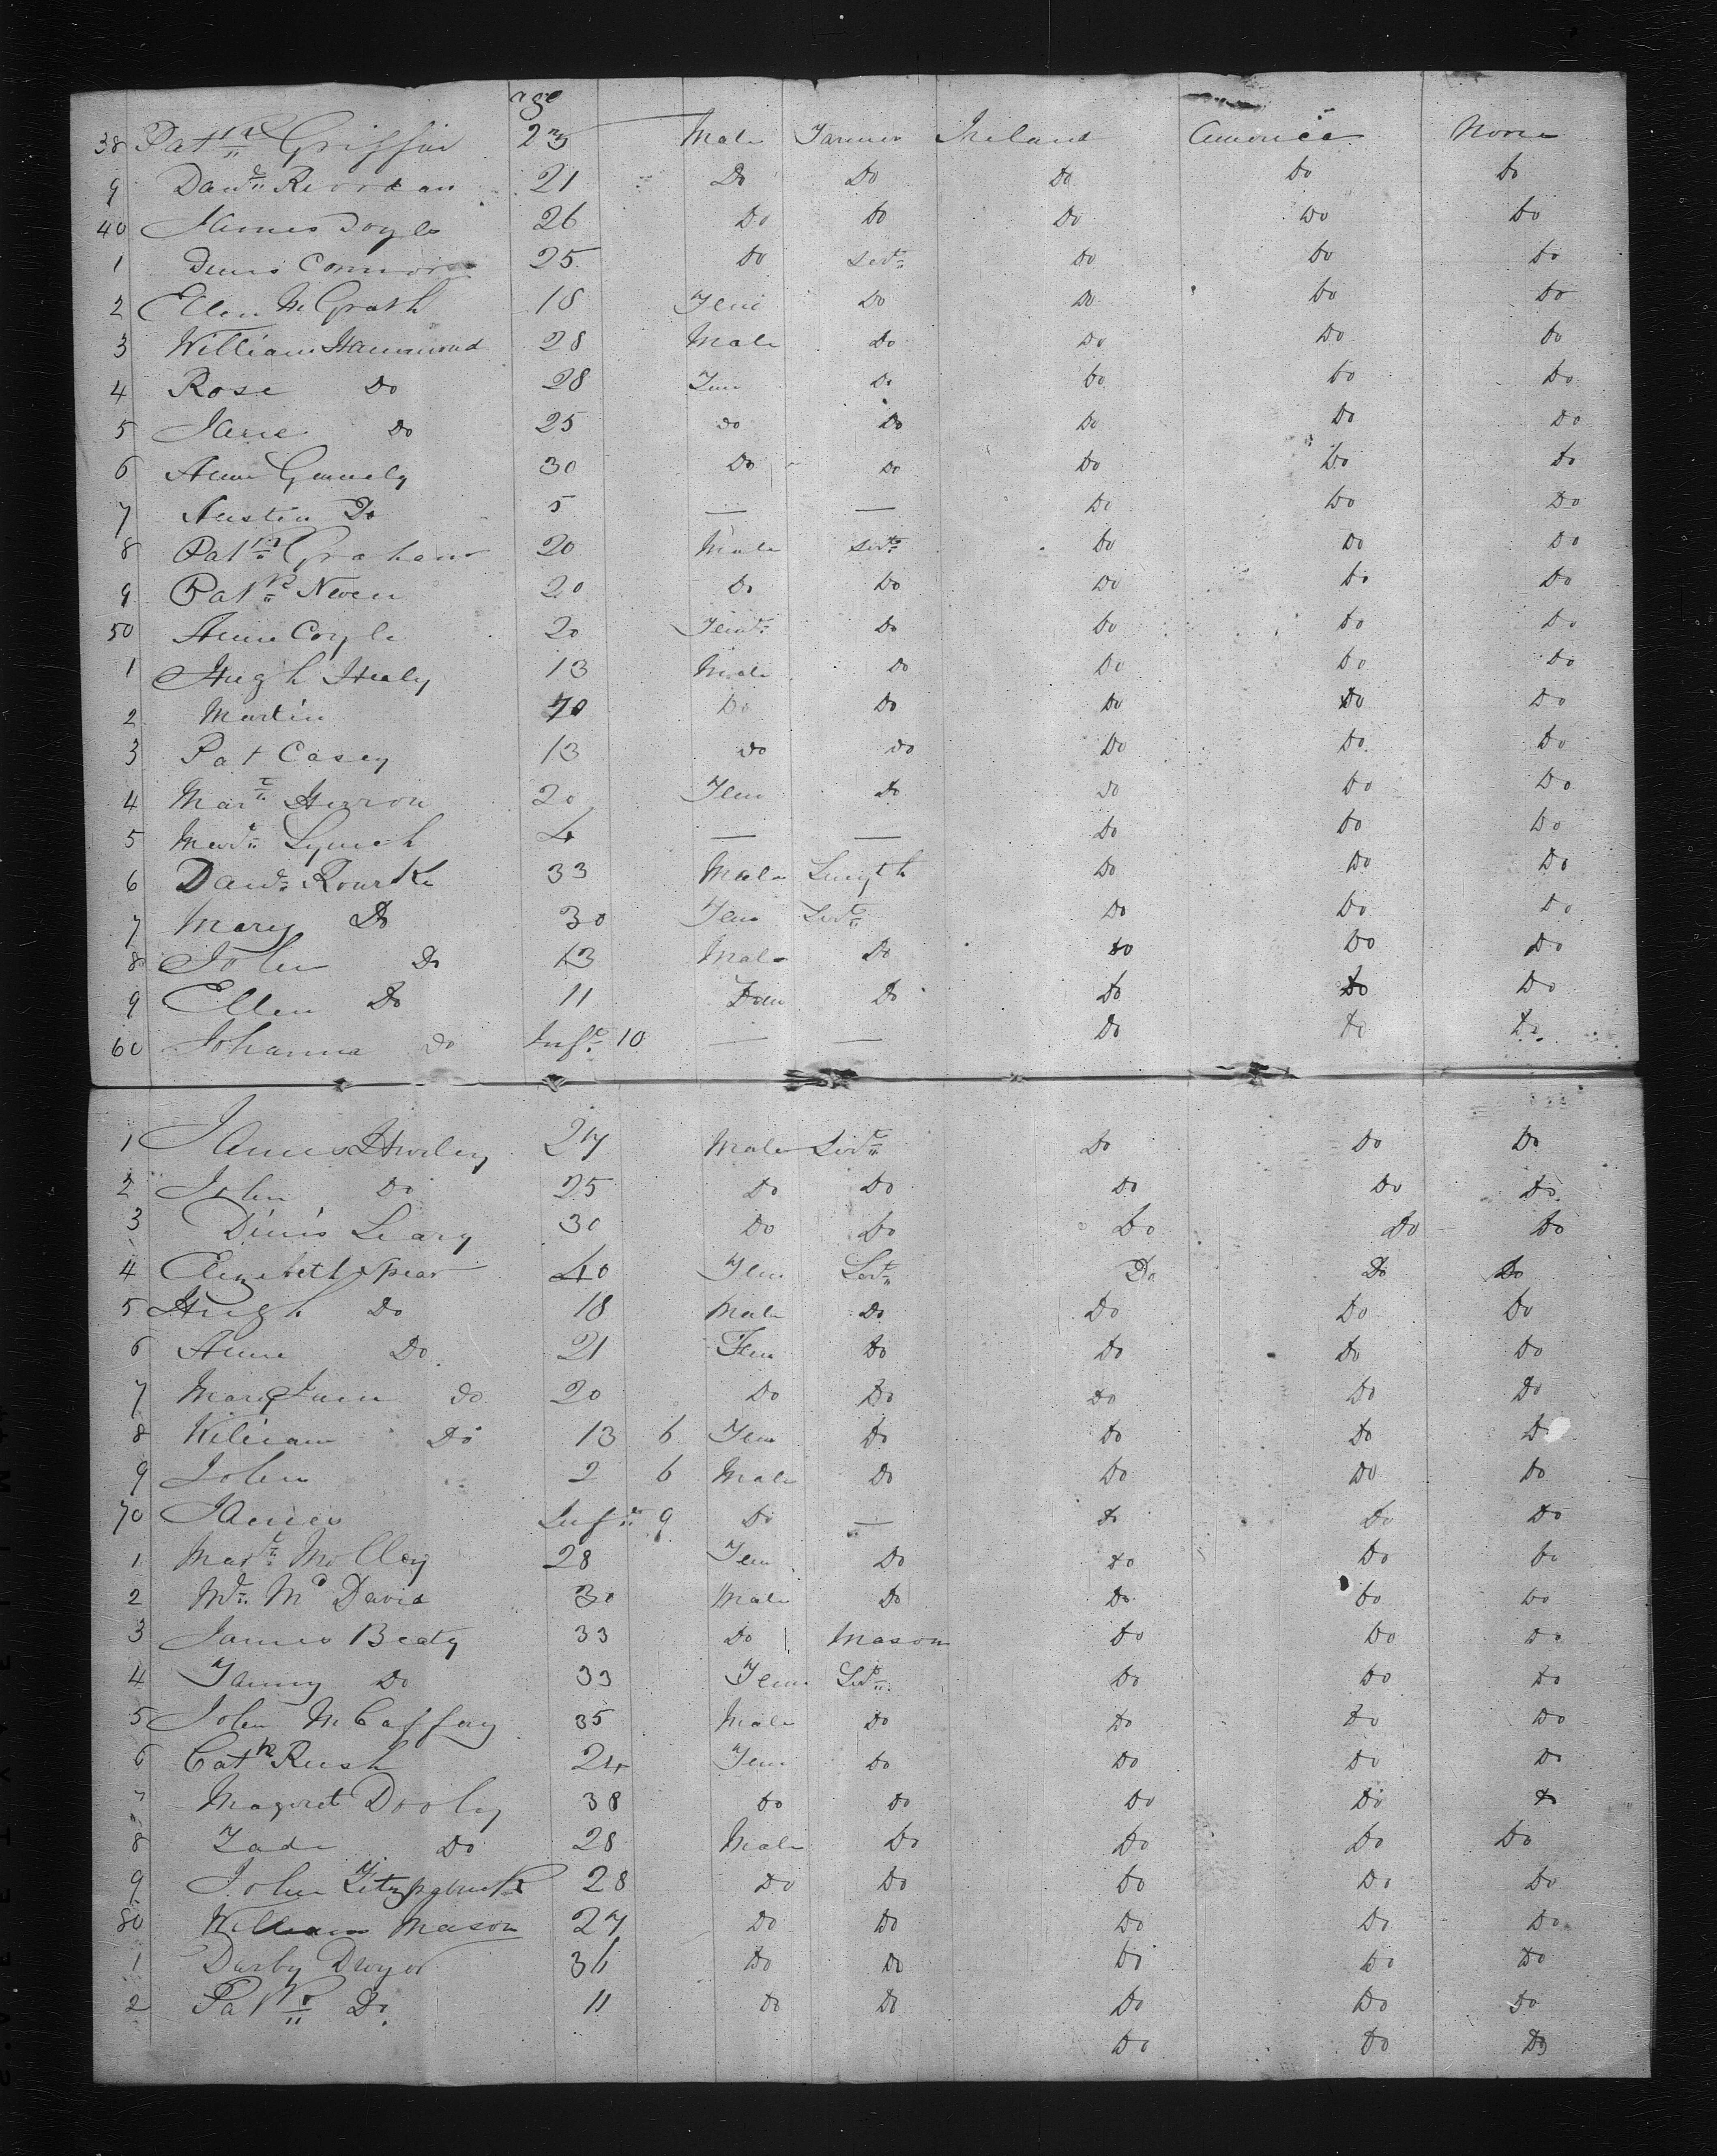 age
38 Patk Griffin 23 Male Farmer Ireland America None
9 Davd Riordan 21 Do Do Do Do Do
40 James Doyle 26 Do Do Do Do Do
1 Denis Connors 25 Do Servt Do Do Do
2 Ellen McGrath 18 Fem Do Do Do Do
3 William Hammond 28 Male Do Do Do Do
4 Rose Do 28 Fem Do Do Do Do
5 Jane Do 25 Do Do Do Do Do
6 Anne 30 Do Do Do Do Do
7 Austin Do 5 — — Do Do Do
8 Patk Graham 20 Male Servt Do Do Do
9 Patk Neven 20 Do Do Do Do Do
50 Anne Coyle 20 Do Do Do Do
1 Hugh Healy 13 Male Do Do Do Do
2 Martin Do Do Do Do Do
3 Pat Casey 13 Do Do Do Do Do
4 Mart Herron 20 Fem Do Do Do Do
5 Mart Lynch 4 — — Do Do Do
6 Davd Rourke 33 Male Smyth Do Do Do
7 Mary Do 30 Fem Servt Do Do Do
8 John Do 13 Male Do Do Do Do
9 Ellen Do 11 Fem Do Do Do Do
60 Johanna Do Inft 10 — — Do Do Do
1 James Hurley 27 Male Servt Do Do Do
2 John Do 25 Do Do Do Do Do
3 Dinis Leary 30 Do Do Do Do Do
4 Elizebeth Spear 40 Fem Servt Do Do Do
5 Hugh Do 18 Male Do Do Do Do
6 Anne Do 21 Fem Do Do Do Do
7 Mary Jane Do 20 Do Do Do Do Do
8 William Do 13 6 Fem Do Do Do Do
9 John 2 6 Male Do Do Do Do
70 James Inft 9 Do — Do Do Do
1 Mart Molley 28 Fem Do Do Do Do
2 Wm Mc David 30 Male Do Do Do Do
3 James Beaty 33 Do Mason Do Do Do
4 Fanny Do 33 Fem Servt Do Do Do
5 John McCaffay 35 Male Do Do Do Do
6 Cath Rush 24 Fem Do Do Do Do
7 Magret Dooley 38 Do Do Do Do Do
8 Do 28 Male Do Do Do Do
9 John Fitzpatrick 28 Do Do Do Do Do
80 William Mason 27 Do Do Do Do Do
1 Darby Dwyer 36 Do Do Do Do Do
2 Patk Do 11 Do Do Do Do Do
Do Do Do